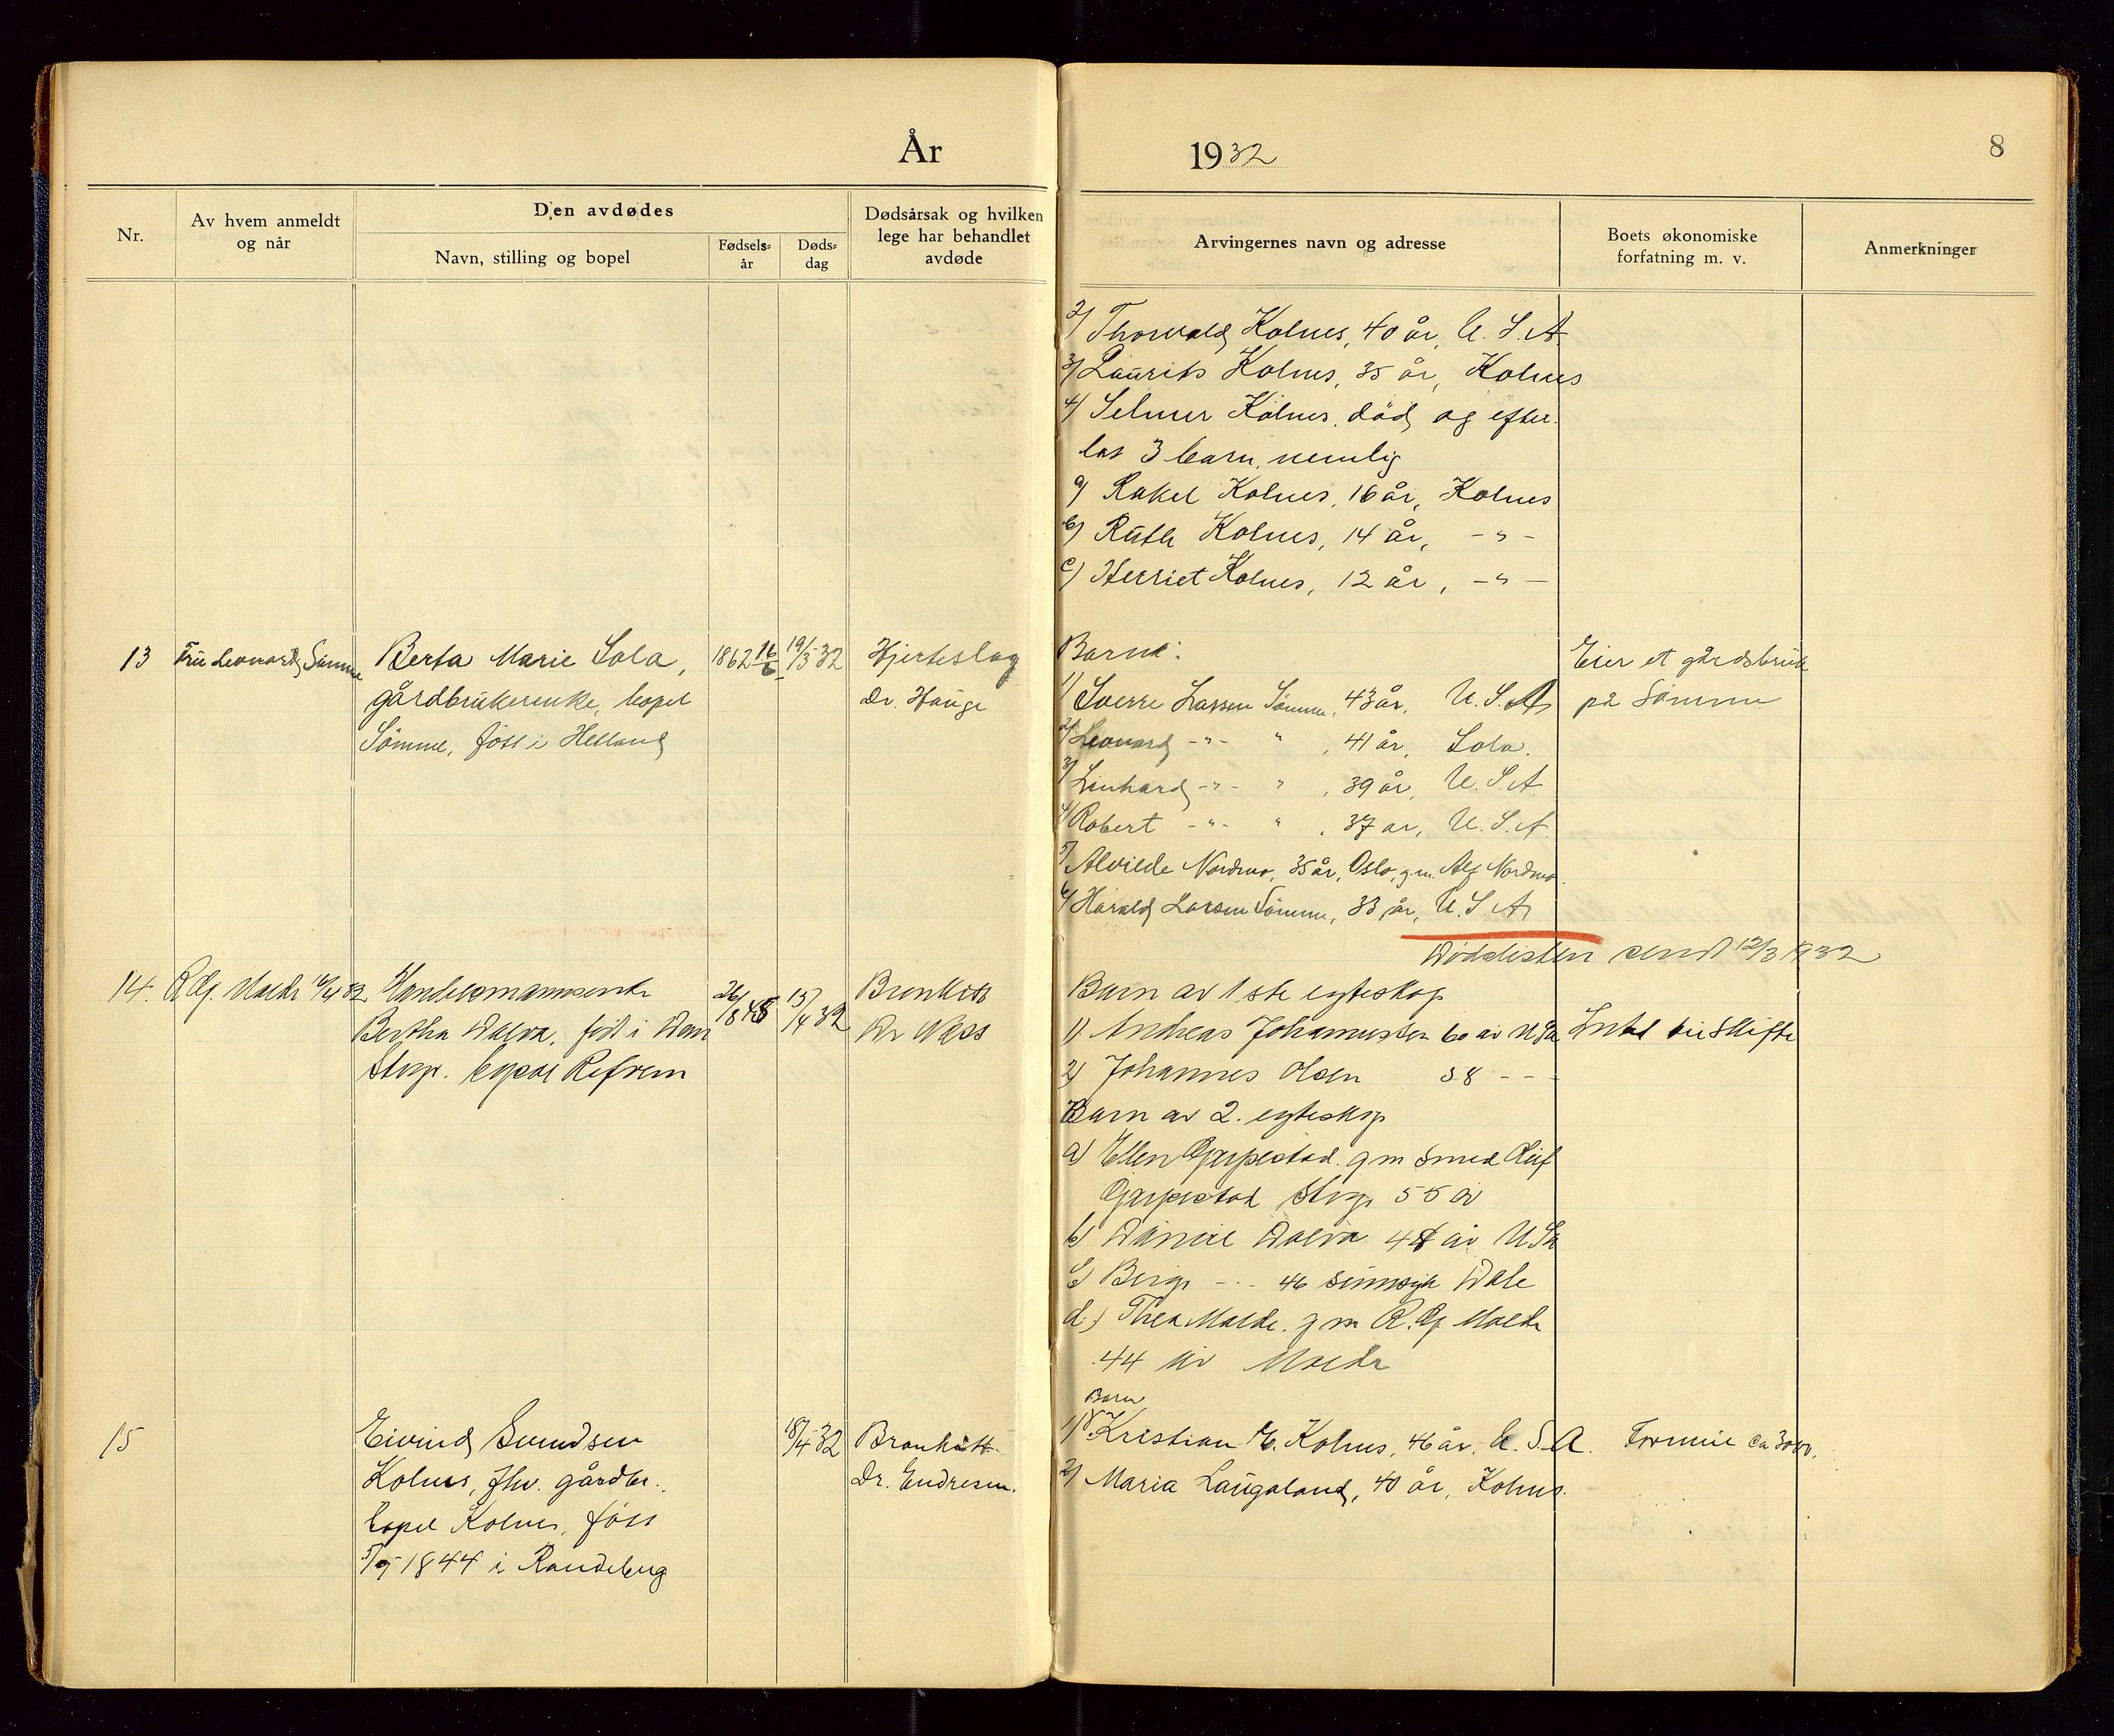 År 1932
8
Nr.
Av hvem anmeldt
og når
Den avdødes
Navn, stilling og bopel
Fødsels-
år
Døds-
dag
Dødsårsak og hvilken
lege har behandlet
avdøde
Arvingernes navn og adresse
Boets økonomiske
forfatning m. v.
Anmerkninger
2) Thorvald Kolnes, 40 år, U. S. A.
3) Laurits Kolnes, 35 år, Kolnes
4) Selmer Kolnes, död og efter-
lot 3 barn, nemlig
a) Rakel Kolnes, 16 år, Kolnes
b) Ruth Kolnes, 14 år, - " -
c) Herriet Kolnes, 12 år, - " -
13
Fru Leonard Sömme
Berta Marie Sola,
gårdbrukerenke, bopel
Sömme, fött i Helland
1862 16/6
19/3-32
Hjerteslag
Dr. Hauge
Barn:
1) Sverre Larsen Sömme, 43 år, U. S. A.
2) Leonard - " - " , 41 år, Sola.
3) Linhard - " - " , 39 år, U. S. A.
4) Robert - " - " , 37 år, U. S. A.
5) Alvilde Nordmo, 35 år, Oslo, g.m. Alf Nordmo.
6) Harald Larsen Sömme, 33 år, U. S. A.
Eier et gårdsbruk
på Sömme
Dødslisten sendt 12/3 1932
14.
Malde 32
Bertha Walva, født i
Stvgr. bopæl Refrem
26/8 48
15/4 32
Bronkitt
Dr Næss
Barn av 1ste egteskap
1) Andreas Johannessen 60 år USA
2) Johannes Olsen 58 - -
Barn av 2. egteskap
a) Ellen Gjerpestad. g m smed
Gjerpestad Stvgr 55 år
b) Daniel Walva 48 år USA
c) Birger - " - 46 sinnsyk Dale
d.) Thea Malde. g m R. Malde
44 år Malde
Intet til Skifte
15
Eivind Svendsen
Kolnes, fhv. gårdbr.,
bopel Kolnes, födt
5/9-1844 i Randeberg
18/4-32
Bronkitt.
Dr. Endresen.
Barn
1) Kristian E. Kolnes, 46 år, U. S. A.
2) Maria Laugaland, 40 år, Kolnes.
Formue ca 3000.